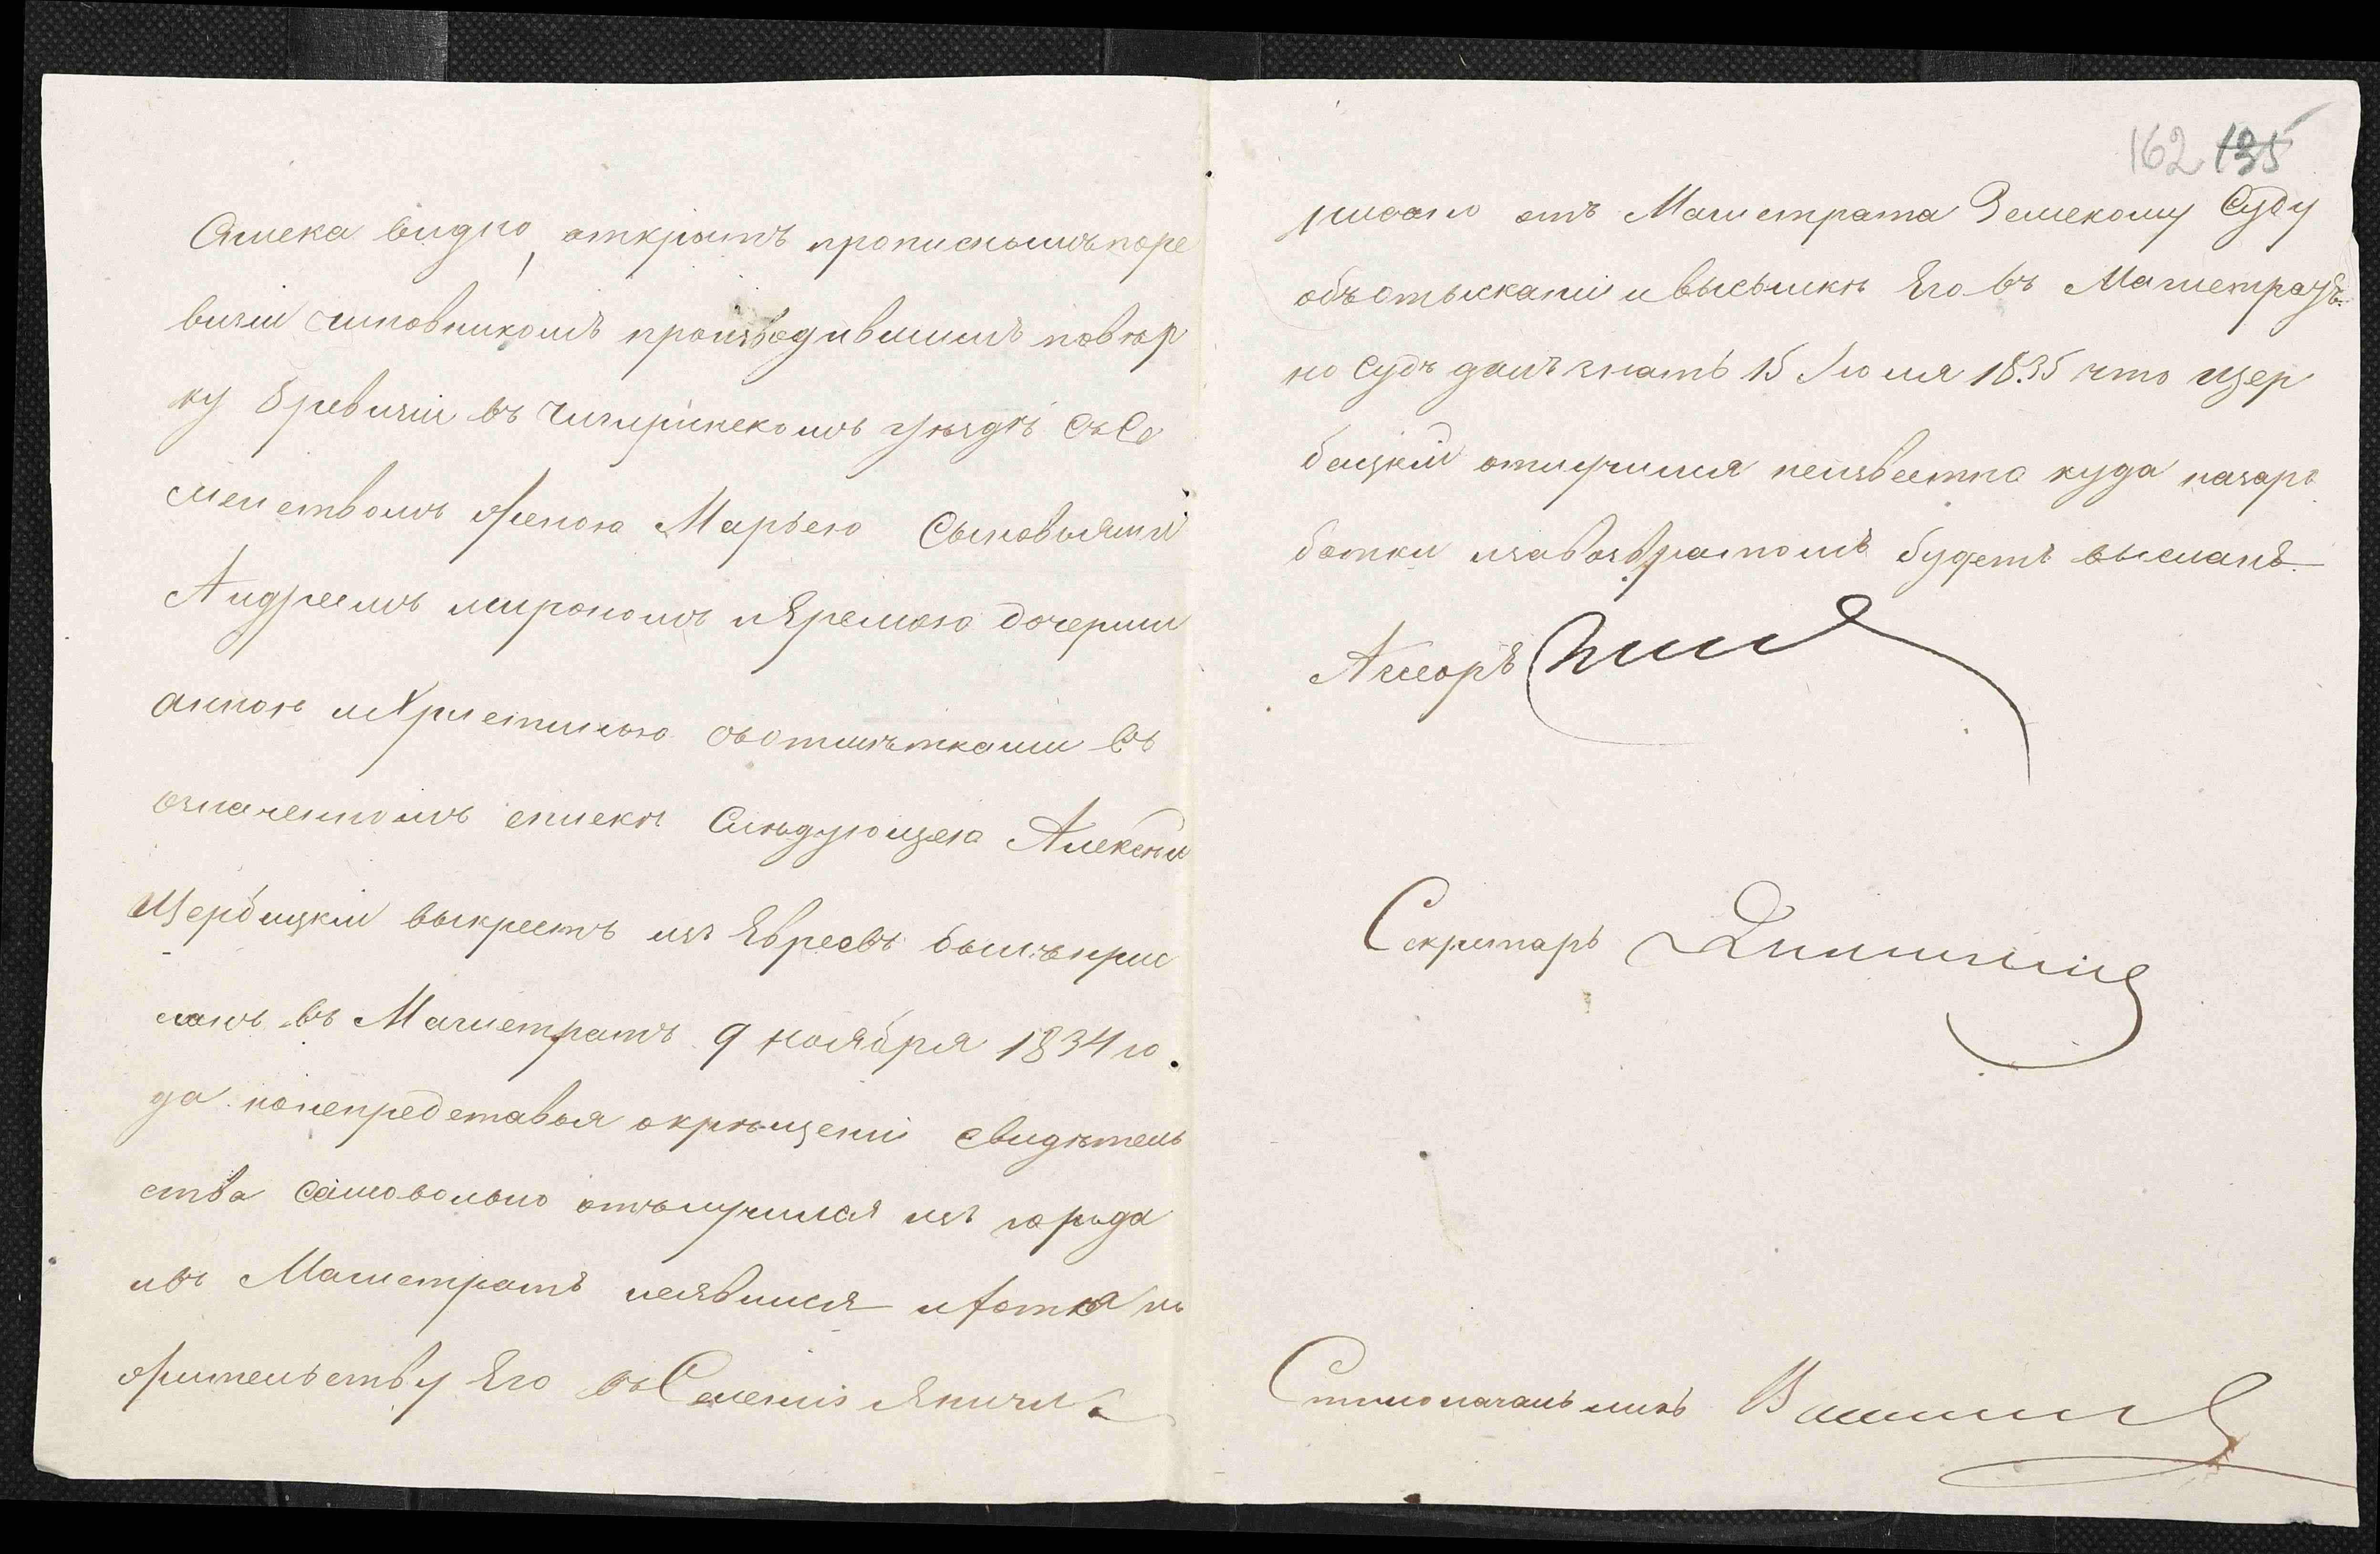 списка видно, открытъ прописнымъ поре
визіи чиновникомъ производившимъ повѣр
ку 8 ревизіи въ Чигиринскомъ уѣздѣ съ Се
мействомъ женою Марьею Сыновьями
Андреемъ мирономъ и Яремою дочерми
анною и Христиною съ отмѣтками въ
означенномъ списки слѣдующею Алексѣй
Щербицкій выкрестъ изъ Евреевъ былъ прис
ланъ въ Магистратъ 9 ноября 1834 го
да но непредставя о крѣщеніи свидѣтель
ства самовольно отълучился изъ города
и въ Магистратъ неявился и
жительству Его въ Селеніи Яничи
162 135
писано отъ Магистрата Земскому Суду
объ отысканіи и высылки Его въ Магистратъ
но судъ далъ знать 15 Июля 1835 что Щер
бицкій отлучился неизвестно куда на зара
ботки и за возвратомъ будетъ высланъ
Асесоръ
Секретарь
Столоначальникъ